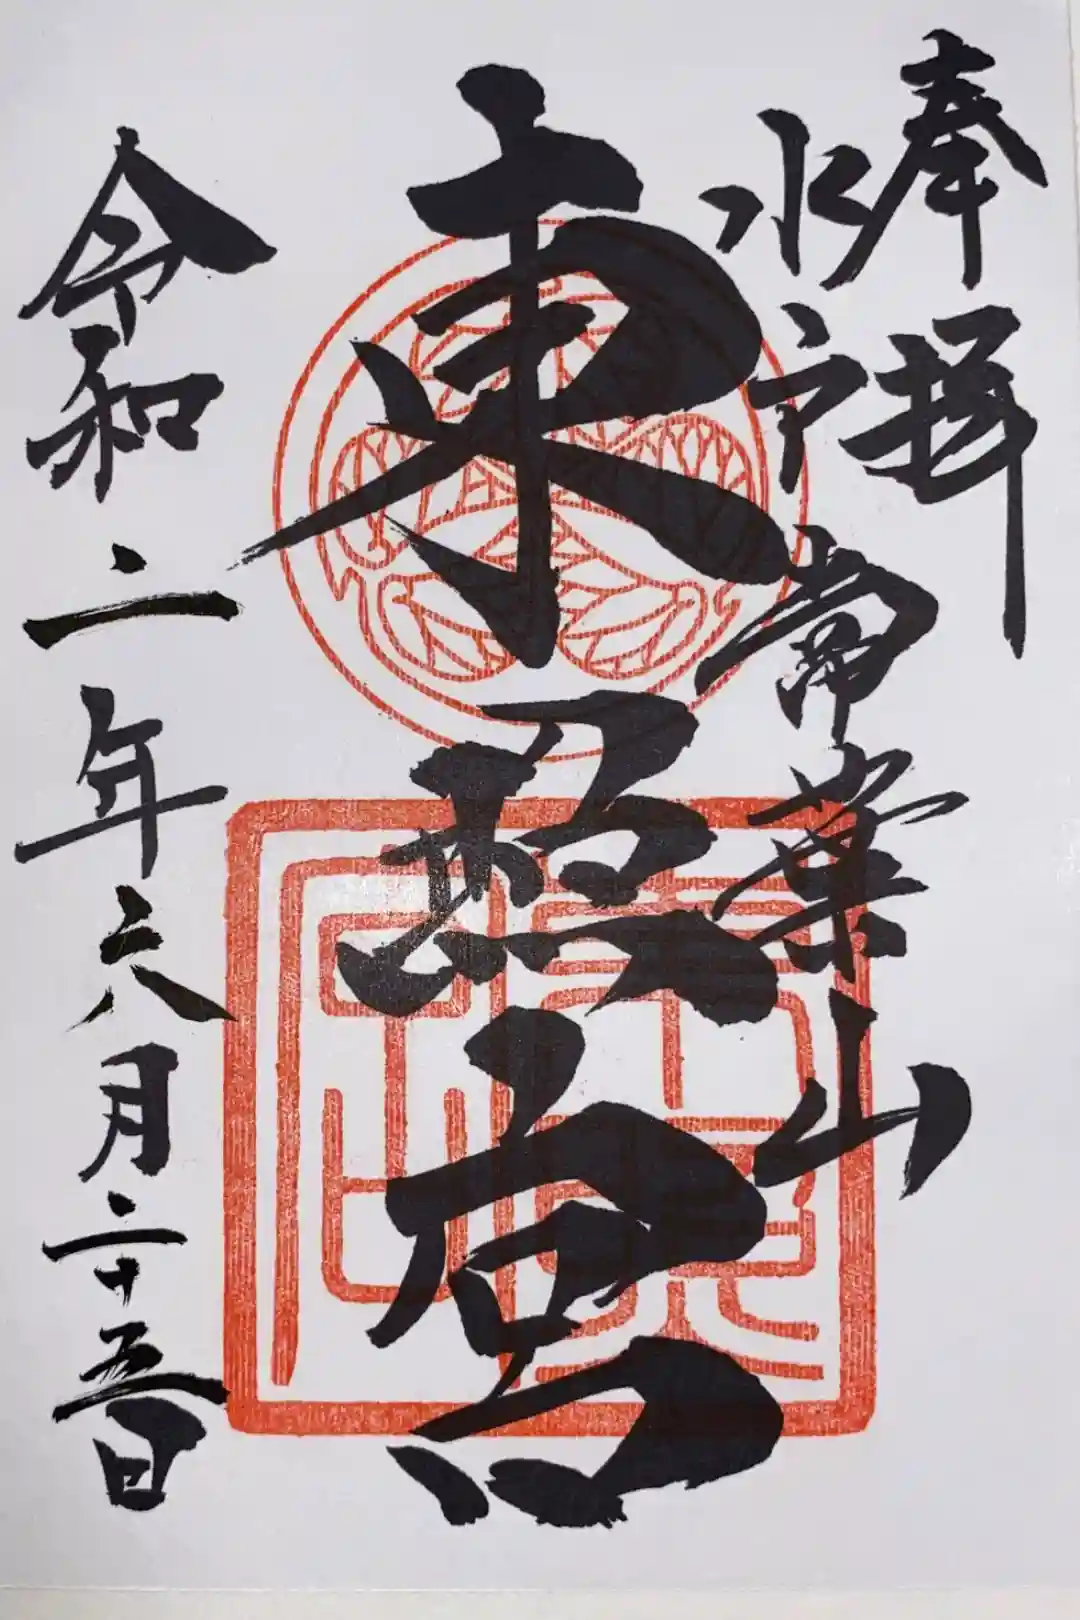 奉拝
水戸 常葉山
東照宮
令和二年六月二十五日